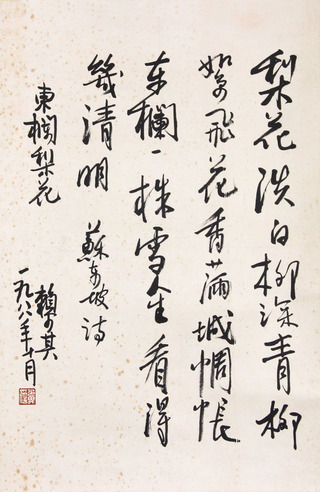 梨花淡白柳深青柳
絮飛花香滿城惆悵
东欄一株雪人生看得
幾清明 蘇东坡詩
東欄梨花
賴少其
一九八八年十月